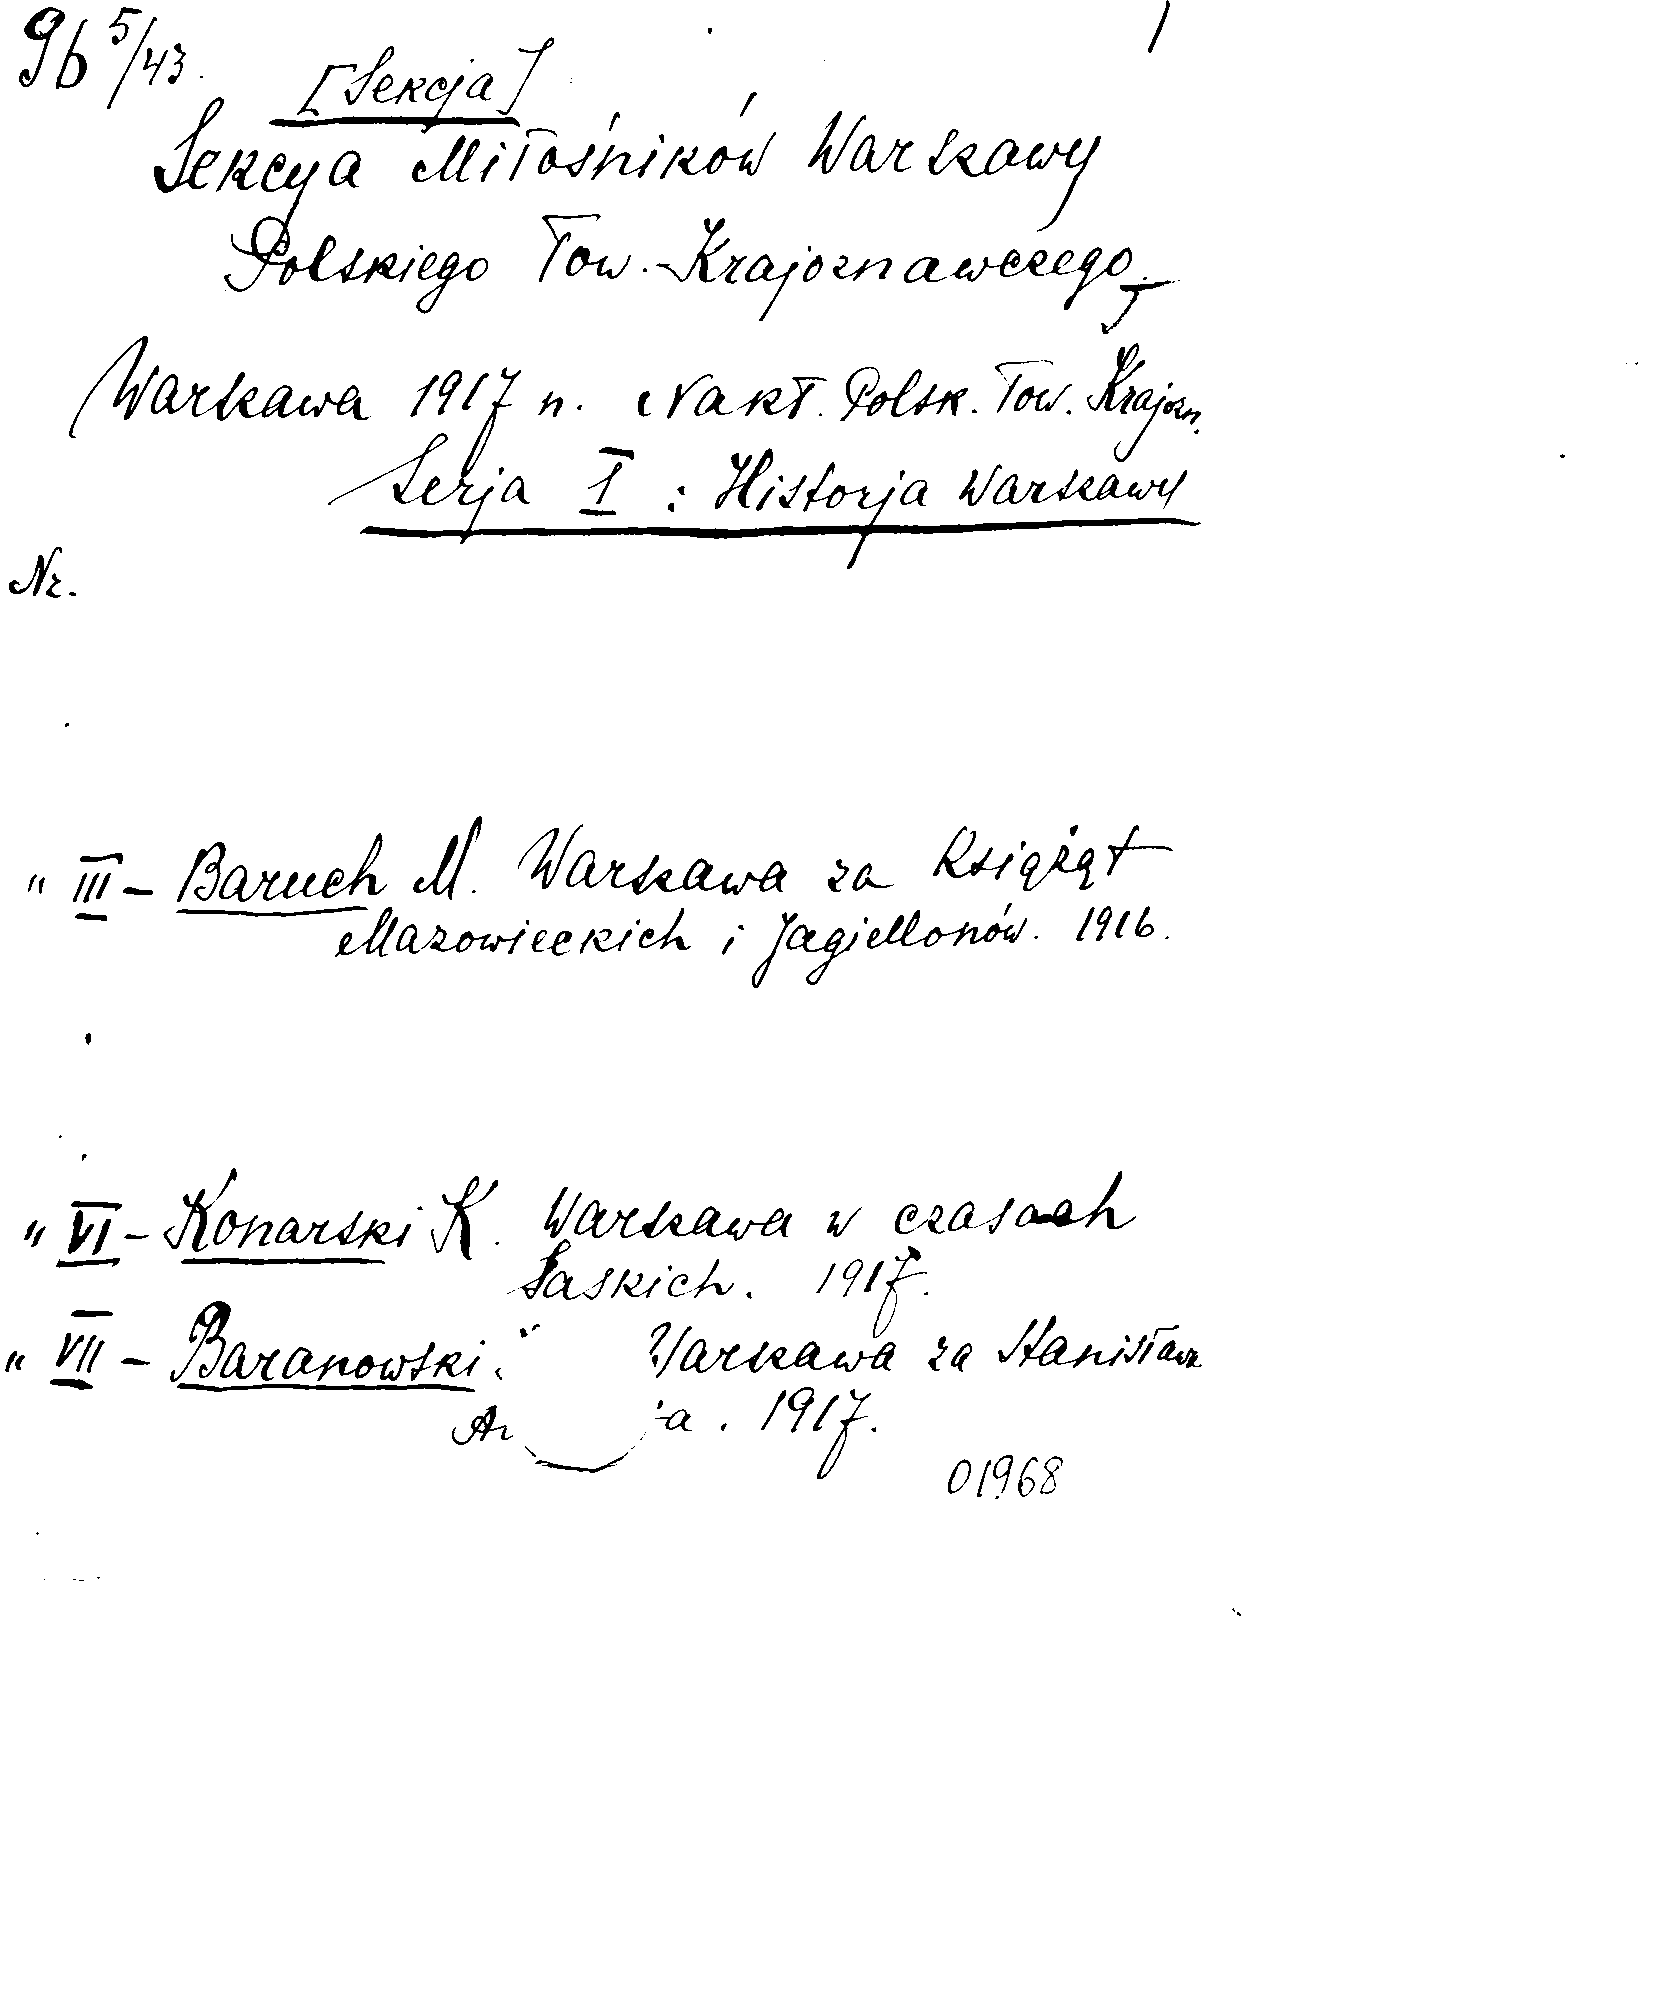 96 5/43.
1
[Sekcja]
Sekcya Miłośników Warszawy
Polskiego Tow.-Krajoznawczego
Warszawa 1917 n. Nakł. Polsk. Tow. Krajozn.
Serja I : Historja Warszawy
Nr.
" III – Baruch M. Warszawa za Książąt
Mazowieckich i Jagiellonów. 1916.
" VI – Konarski K. Warszawa w czasach
Saskich. 1917.
" VII – Baranowski. Warszawa za Stanisław
-a. 1917.
01968